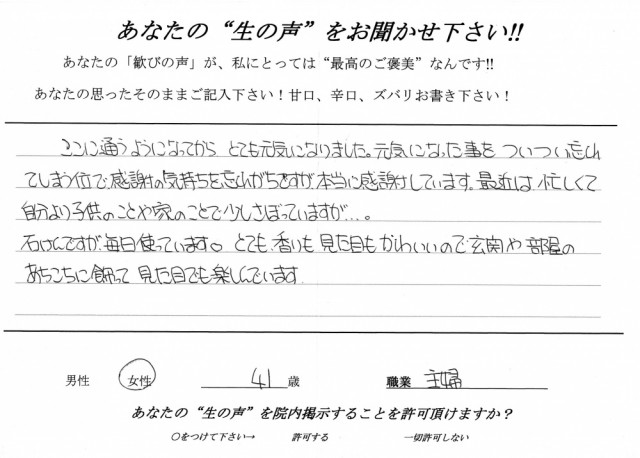 あなたの“生の声”をお聞かせ下さい!!
あなたの「歓びの声」が、私にとっては“最高のご褒美”なんです!!
あなたの思ったそのままご記入下さい！甘口、辛口、ズバリお書き下さい！
ここに通うようになってから とても元気になりました。元気になった事を ついつい忘れ
てしまう位で感謝の気持ちを忘れがちですが本当に感謝しています。最近は 忙しくて
自分より子供のことや家のことで少しさぼっていますが…。
石けんですが、毎日使っています。とても、香りも 見た目も かわいいので玄関や 部屋の
あちこちに飾って 見た目でも楽しんでいます
男性 女性 41 歳 職業 主婦
あなたの“生の声”を院内掲示することを許可頂けますか？
○をつけて下さい→ 許可する 一切許可しない